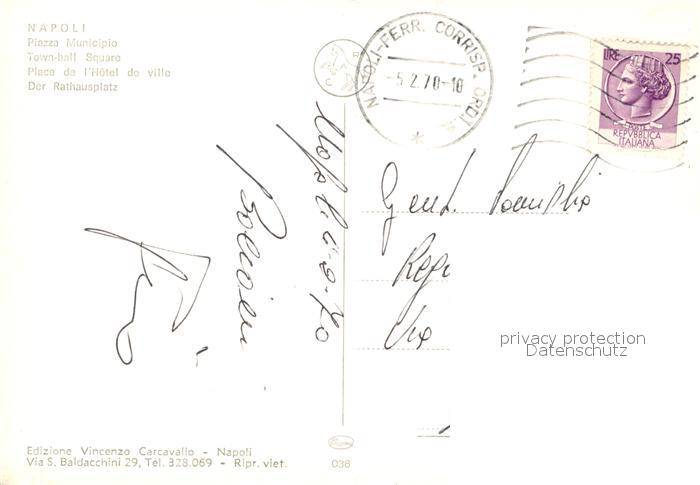 NAPOLI
Piazza Municipio
Town-hall Square
Place de l'Hôtel de ville
Der Rathausplatz
NAPOLI-FERR. CORRISP. ORD.
-5.2.70-10
LIRE 25
POSTE
REPVBBLICA
ITALIANA
Gent. Famiglia
Via
Napoli
privacy protection
Datenschutz
Edizione Vincenzo Carcavallo - Napoli
Via S. Baldacchini 29, Tel. 328.069 - Ripr. viet.
038